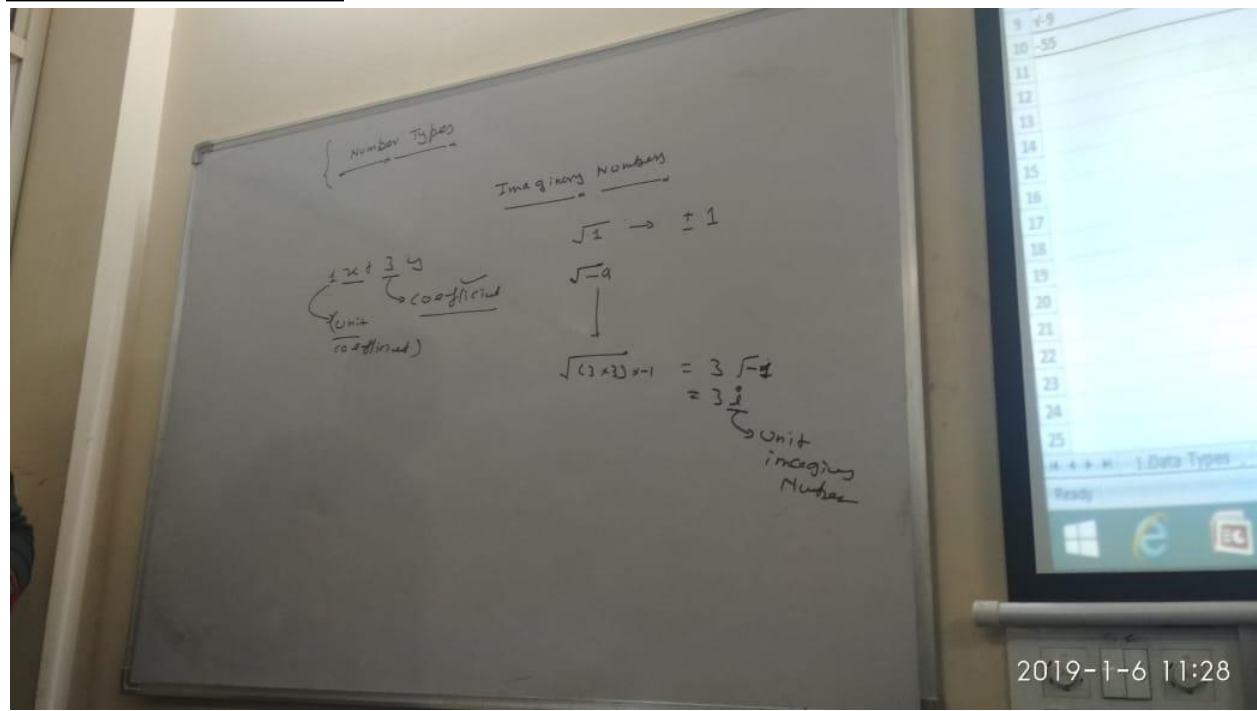 { Number Types
Imaginary Numbers
√1 → ± 1
1x + 3y
coefficient
(Unit
√-9
√(3×3)×-1 = 3 √-1
= 3 i
Unit
imaginary
Number
9 √-9
10 -55
11
12
13
14
15
16
17
18
19
20
21
22
23
24
25
1.Data Types
Ready
2019-1-6 11:28